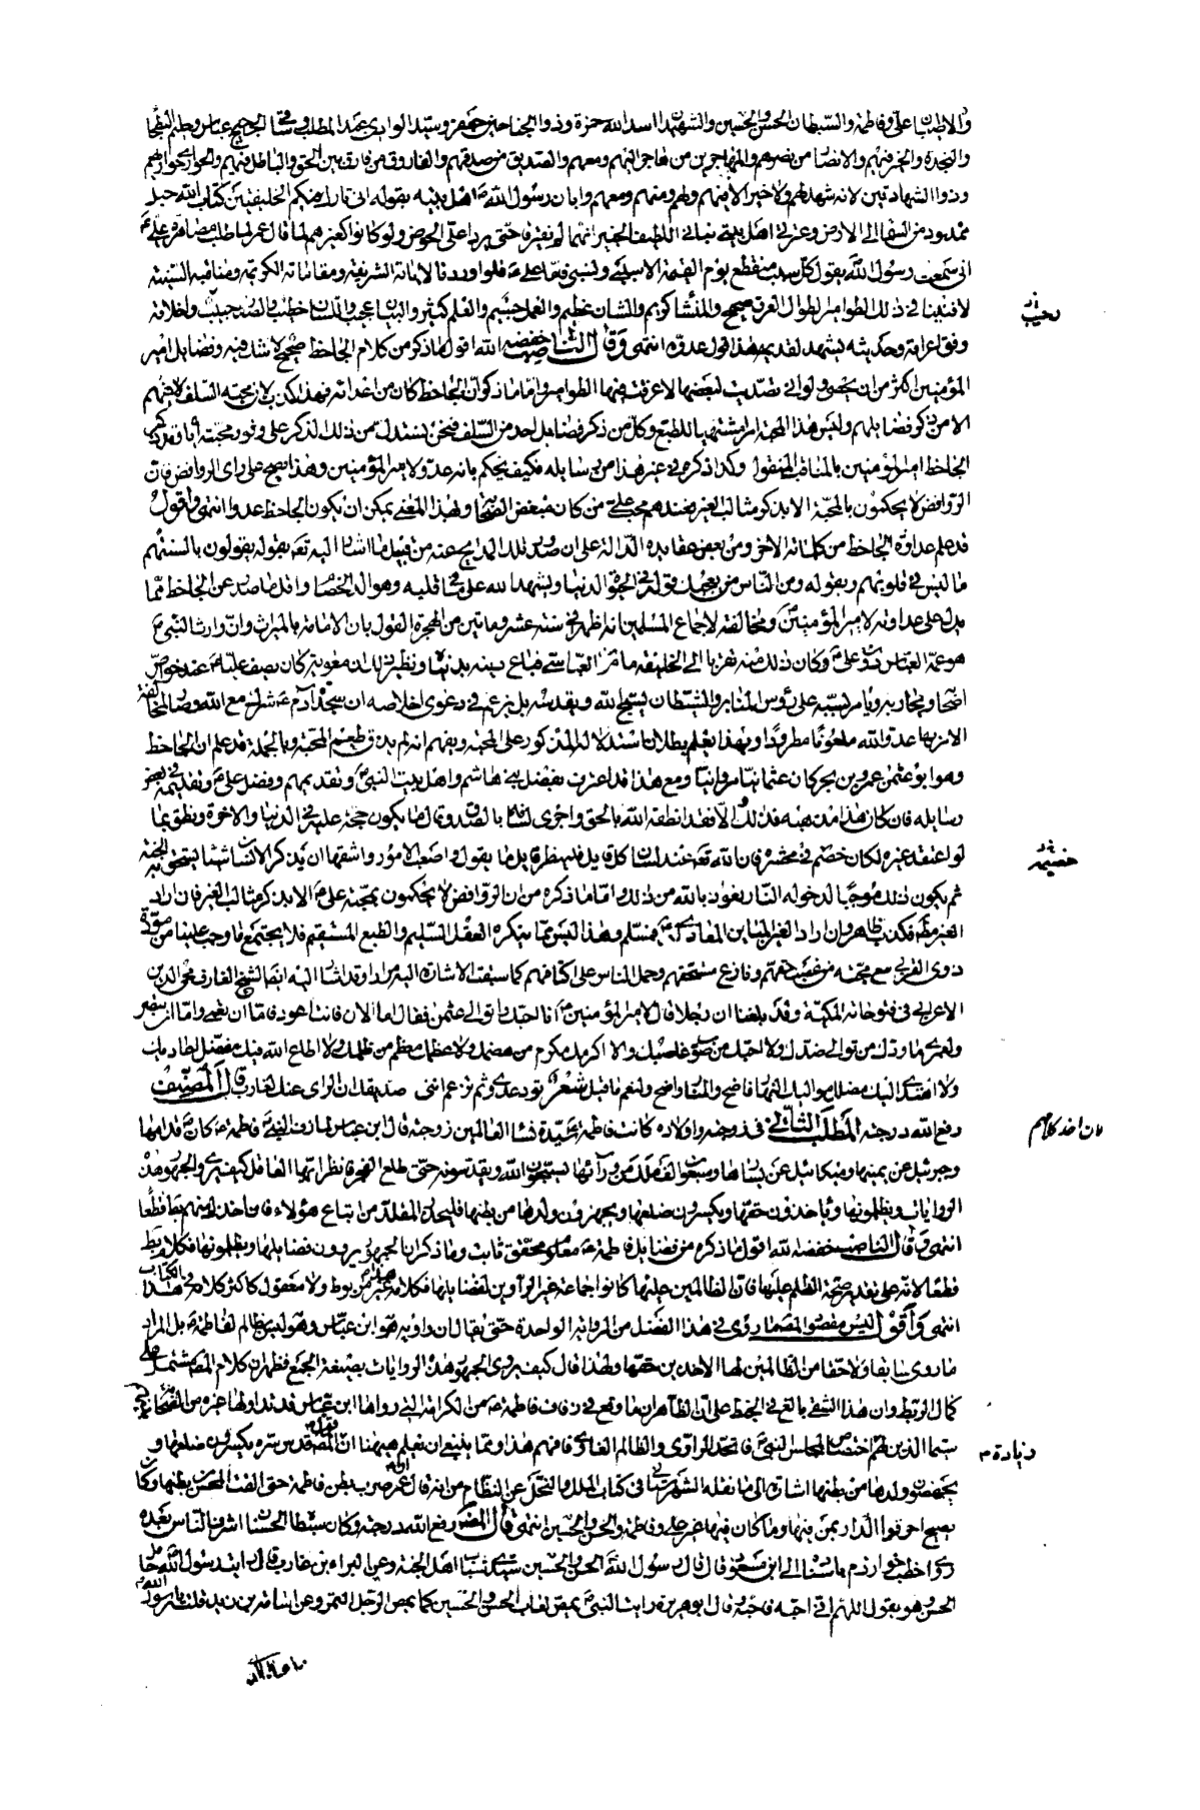 والاطيبان علي وفاطمة والسبطان الحسن والحسين والشهيدان اسد الله حمزة وذو الجناحين جعفر وسيد الوادي عبد المطلب وساقي الحجيج عباس وحليم البطحاء
والنجدة والخير فيهم والانصار من نصرهم والمهاجرين من هاجر اليهم ومعهم والصديق من صدقهم والفاروق من فارق بين الحق والباطل فيهم والحواري حواريهم
وذو الشهادتين لانه شهد لهم ولا خير الا فيهم ولهم ومنهم ومعهم وابان رسول الله ص اهل بيته بقوله اني تارك فيكم الخليفتين كتاب الله حبل
ممدود من السماء الى الارض وعترتي اهل بيتي نبأني اللطيف الخبير انهما لن يفترقا حتى يردا على الحوض ولو كانوا كغيرهم لما قال عمر لما طلب مصاهرة علي ع
اني سمعت رسول الله ص يقول كل سبب ونسب منقطع يوم القيمة الا سببي ونسبي فاما علي ع فلو اوردنا لايامه الشريفة ومقاماته الكريمة ومناقبه السنية
لافنينا في ذلك الطوامير الطوال العرق صحيح والمنشأ كريم والشان عظيم والعمل جسيم والعلم كثير والبيان عجيب واللسان خطيب والصدر رحيب واخلاقه
وفق اعراقه وحديثه يشهد لقديمه هذا قول عدوه انتهى وقال الناصب خفضه الله اقول ما ذكر من كلام الجاحظ صحيح لا شك فيه وفضائل امير
المؤمنين اكثر من ان يحصى ولو اني تصديت لبعضها لاغرقت فيها الطوامير واما ما ذكر ان الجاحظ كان من اعدائه فهذا كذب لان محبة السلف لا يفهم
الا من ذكر فضائلهم وليس هذا المحبة امر مشتهيا للطبع وكل من ذكر فضايل احد من السلف فنحن نستدل من ذلك الذكر على وفور محبته اياه وقد ذكر
الجاحظ امير المؤمنين بالمناقب المنقول وكذا ذكر في غير هذا من رسايله فكيف يحكم بانه عدو لامير المؤمنين وهذا يصح على راي الروافض فان
الروافض لا يحكمون بالمحبة الا بذكر مثالب الغير فعندهم محب علي من كان مبغض الصحابة ولهذا المعنى يمكن ان يكون الجاحظ عدوا انتهى واقول
قد علم عداوة الجاحظ من كلماته الاخر ومن بعض عقايده الدالة على ان صدور تلك المدايح عنه من قبيل ما اشار اليه تعالى بقوله يقولون بالسنتهم
ما ليس في قلوبهم وبقوله ومن الناس من يعجبك قوله في الحيوة الدنيا ويشهد الله على ما في قلبه وهو الد الخصام واقل ما صدر عن الجاحظ مما
يدل على عداوته لامير المؤمنين ع ومخالفته لاجماع المسلمين انه اظهر في سنة عشر ومأتين من الهجرة القول بان الامامة بالميراث وان وارث النبي ص
هو عمه العباس دون علي ع وكان ذلك منه تقربا الى الخليفه مامون العباسي فباع دينه بدنياه ونظير ذلك ان معوية كان يصف عليا ع عند خواص
اصحابه ويحاربه ويامر بسبه على رؤس المنابر والشيطان يسبح لله ويقدسه بل يزعم في دعوى اخلاصه ان سجدة آدم ع شرك مع الله وصار لمخالفة
الامر بها عدو الله ملعونا مطرودا وبهذا يعلم بطلان استدلاله للذكور على المحبة ويفهم انه لم يذق طعم المحبة وبالجملة قد علم ان الجاحظ
وهو ابو عثمن عمرو بن بحر كان عثمانيا مروانيا ومع هذا قد اعترف بفضل بني هاشم واهل بيت النبي ص وتقديمهم وفضل علي ع وتقديمه في بعض
رسايله فان كان هذا مذهبه فذلك والا فقد انطقه الله بالحق واجرى لسانه بالصدق وقال ما يكون حجة عليه في الدنيا والاخرة ونطق بما
لو اعتقد غيره لكان خصمه في محشره فان الله تعالى عند لسان كل قايل فلينظر قايل ما يقول واصعب الامور واشقها ان يذكر الانسان شيئا يستحق به الجنة
ثم يكون ذلك موجبا لدخوله النار نعوذ بالله من ذلك واما ما ذكره من ان الروافض لا يحكمون بمحبة علي ع الا بذكر مثالب الغير فان اراد
الغير مطلقا فكذب ظاهر وان اراد الغير المباين المعادي له ع فمسلم وهذا ليس مما ينكره العقل السليم والطبع المستقيم فلا يجتمع ما وجب علينا من مودة
ذوي القربى مع محبة من غصب حقهم ونازع مستحقهم وحمل الناس على اكتافهم كما سبقت الاشارة اليه مرارا وقد اشار اليه ايضا الشيخ العارف محي الدين
الاعرابي في فتوحاته المكية وقد بلغنا ان رجلا قال لامير المؤمنين ع انا احبك واتوالى عثمن فقال اما الان فانت اعور فاما ان تعمى واما ان تبصر
ولعمري ما ودك من توالى ضدك ولا احبك من صوب غاصبك ولا اكرمك مكرم من هضمك ولا عظمك معظم من ظلمك ولا اطاع الله فيك مفضل اعاديك
ولا اهتدى اليك مضلل مواليك النهار فاضح والمنار واضح ولنعم ما قيل شعر تود عدوي ثم تزعم انني صديقك ان الراي عنك لعازب قال المصنف
رفع الله درجته المطلب الثاني في زوجته واولاده كانت فاطمة ع سيدة نساء العالمين زوجته قال ابن عباس لما زفت النبي ص فاطمة ع كان ص قدامها
وجبرئيل عن يمينها وميكائيل عن يسارها وسبعون الف ملك من ورآئها يسبحون الله ويقدسونه حتى طلع الفجر فانظر ايها العاقل كيف يروي الجمهور هذه
الروايات ويظلمونها وياخذون حقها ويكسرون ضلعها ويجهضون ولدها من بطنها فليحذر المقلد من اتباع هؤلاء فان اخذك منهم باطل قطعا
انتهى وقال الناصب خفضه الله اقول ما ذكره من فضايل فاطمة ع معلوم محقق ثابت وما ذكر ان الجمهور يروون فضايلها ويظلمونها فكلام باطل
قطعا لانه على تقدير صحة الظلم عليها فان الظالمين عليها كانوا جماعة غير الراوين لفضايلها فكلامه هذا غير مربوط ولا معقول كاكثر كلامه في هذا الكتاب
انتهى واقول ليس مقصود المصنف ما روي في هذا الفصل من الرواية الواحدة حتى يقال ان راويه هو ابن عباس وهو ليس بظالم لفاطمة ع بل المراد
ما روي سابقا ولاحقا من الظالمين لها الاخذين حقها ولهذا قال كيف يروي الجمهور هذه الروايات بصيغة الجمع فظهر ان كلام المصنف مشتمل على
كمال الربط وان هذا الشقي بالغ في الخبط على ان الظاهر ان ما وقع في زفاف فاطمة ع من الكرامة التي رواها ابن عباس قد تداولها غيره من الصحابة
سيما الذين لهم اختصاص لمجلس النبي ص فاتحد الراوي والظالم العادي فافهم هذا ومما ينبغي ان يعلم ههنا ان قول المصنف قدس سره يكسرون ضلعها و
يجهضون ولدها من بطنها اشارة الى ما نقله الشهرستاني في كتاب الملل والنحل عن النظام من انه قال ان عمر ضرب بطن فاطمة ع حتى القت المحسن من بطنها وكان
يصيح احرقوا الدار بمن فيها وما كان فيها غير علي وفاطمة والحسن والحسين انتهى قال المصنف رفع الله درجته وكان سبطاه الحسنان اشرف الناس بعده
روى اخطب خوارزم باسناده الى ابن مسعود قال قال رسول الله ص الحسن والحسين سيدا شباب اهل الجنة وعن البراء بن عازب قال رايت رسول الله ص حاملا
الحسن وهو يقول اللهم اني احبه فاحبه وقال ابو هريرة رايت النبي ص يمص لعاب الحسن والحسين كما يمص الرجل التمرة وعن اسامة بن زيد قلت يا رسول الله
رحيب
خصيمه
فان اخذ كلام
زيادة